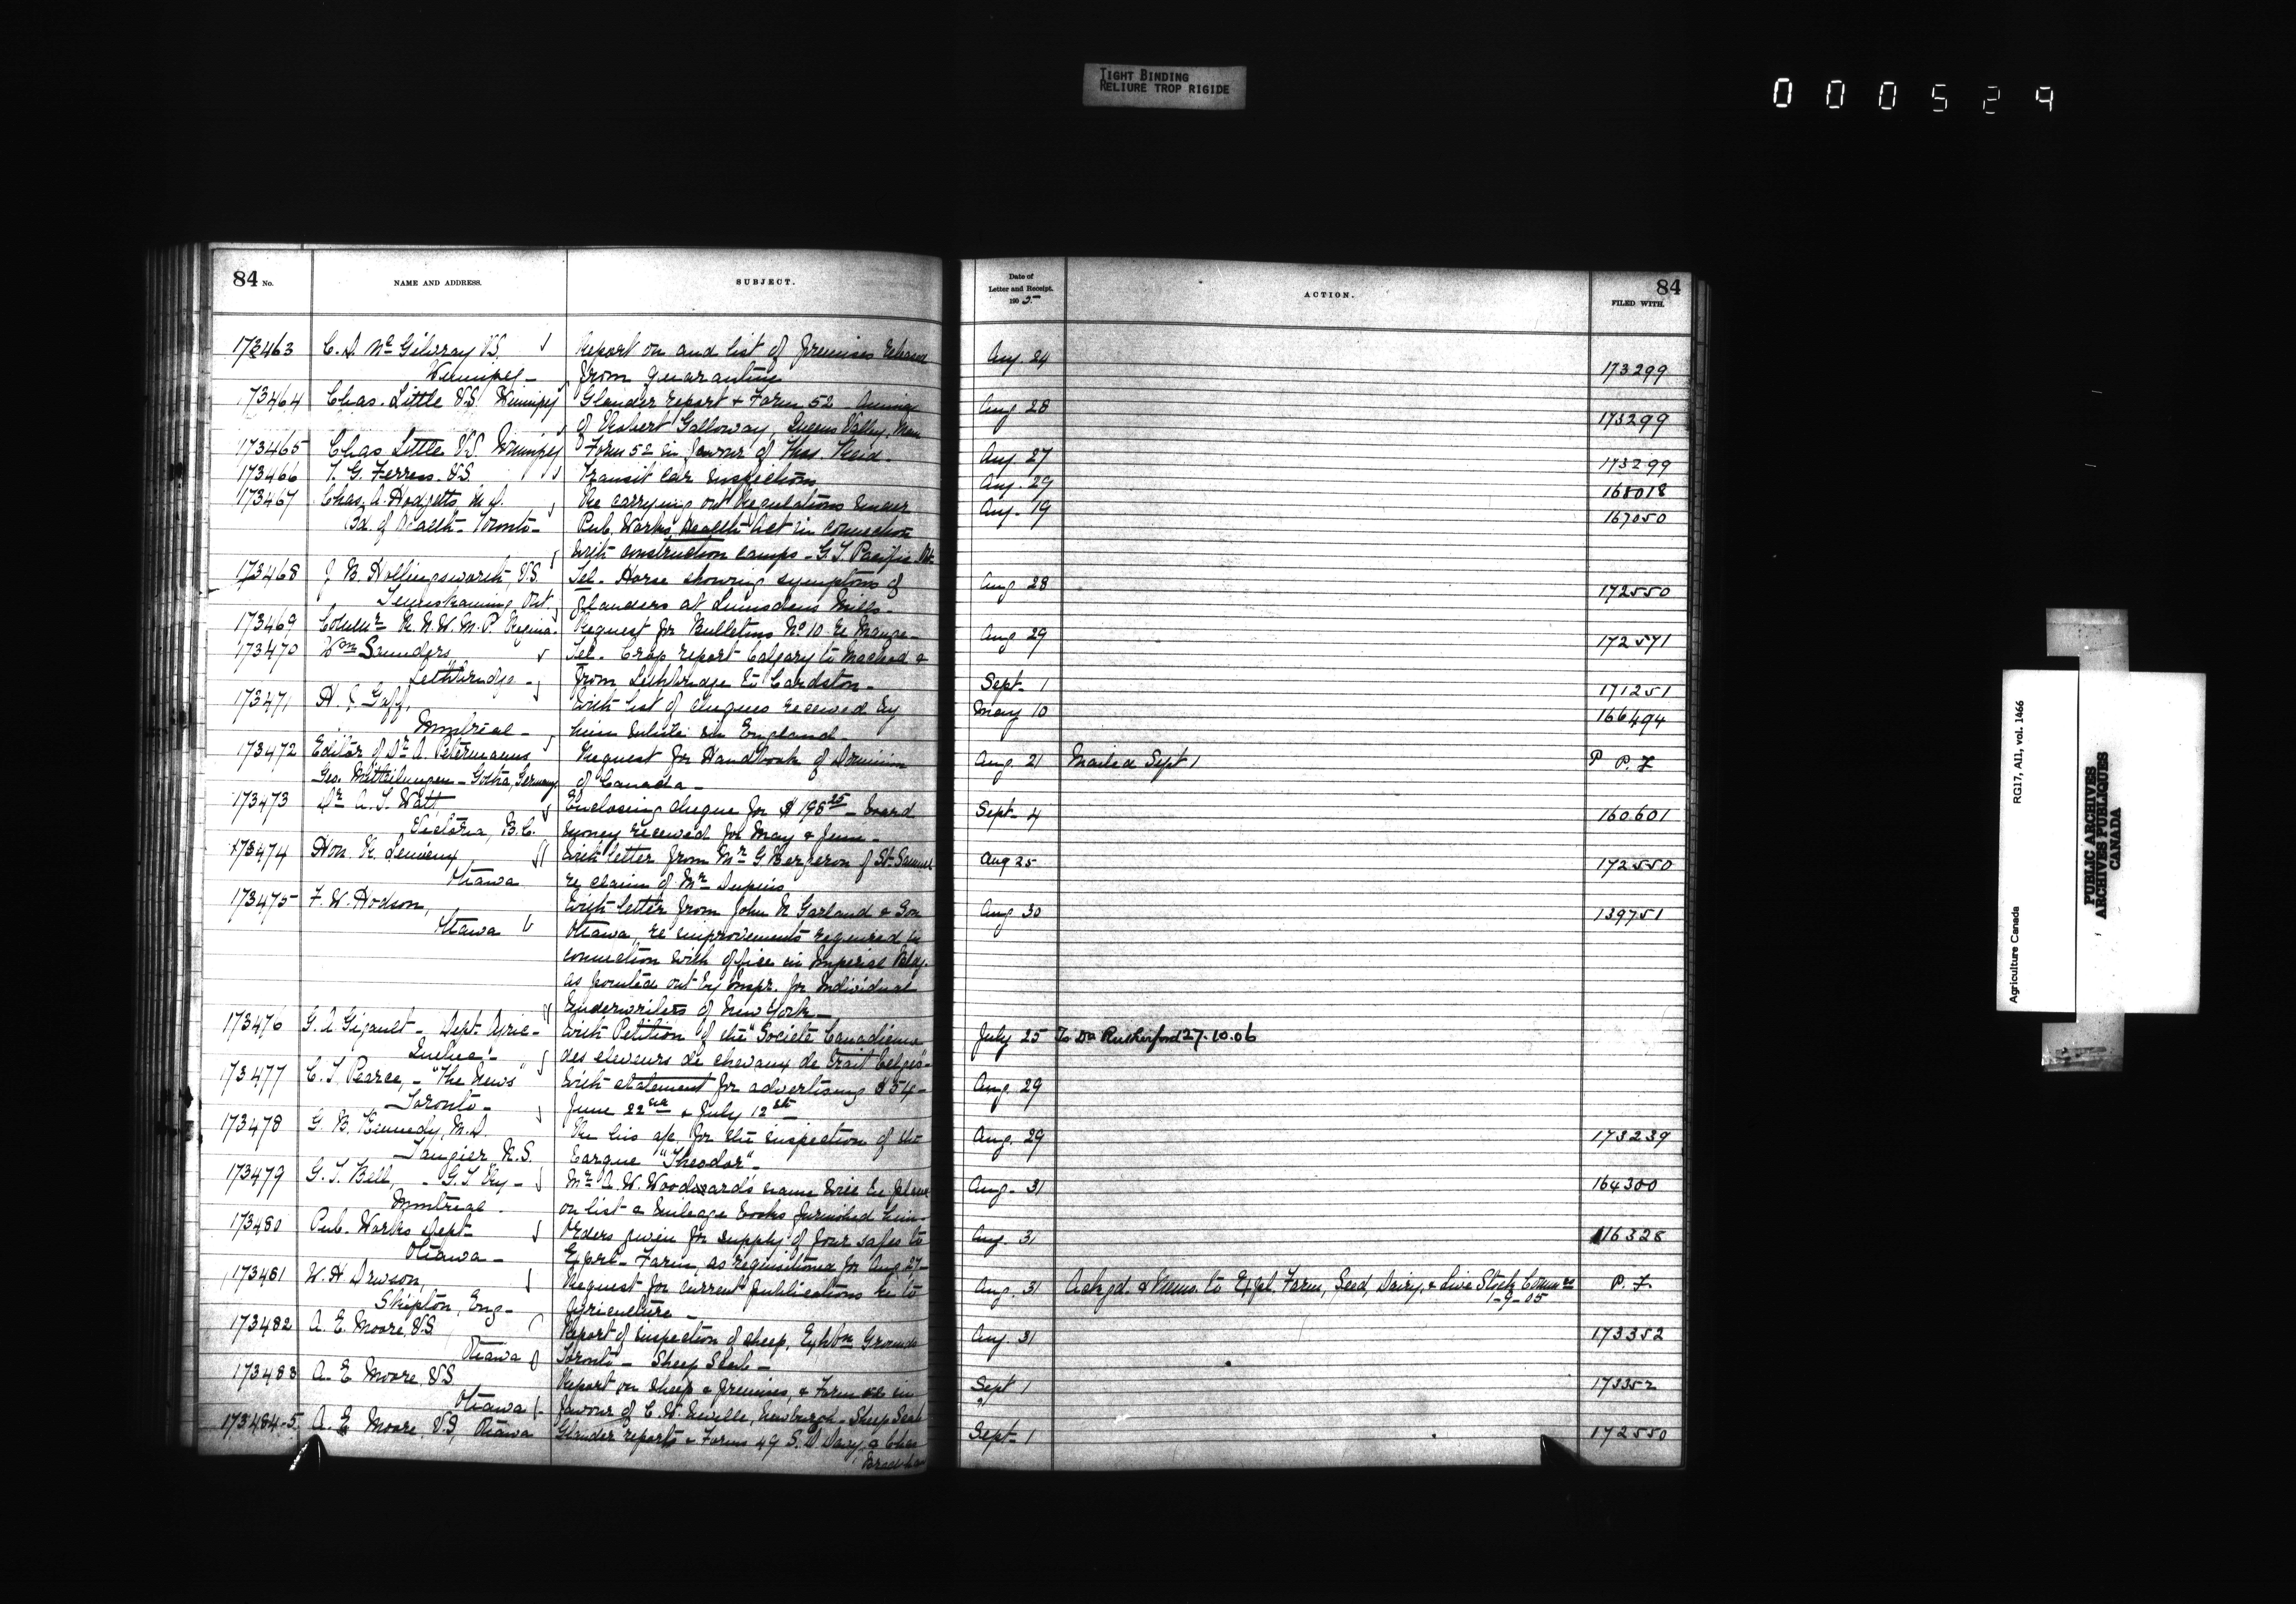 TIGHT BINDING
RELIURE TROP RIGIDE
000529
84 No.
NAME AND ADDRESS.
SUBJECT.
Date of
Letter and Receipt.
190 5
ACTION.
84
FILED WITH.
173463 C. D. McGilvray V.S. Report on and list of premises released Aug. 24
Winnipeg - from quarantine 173299
173464 Chas. Little V.S. Winnipeg Glander report & Form 52 Aug 28
of Robert Galloway, Queens Valley, Man 173299
173465 Chas Little V.S. Winnipeg Form 52 in favour of Thos Reid. Aug 27 173299
173466 T. G. Ferress. V.S. Transit car inspections Aug. 29 168018
173467 Chas. A. Hodgetts, M.D. Re carrying out Regulations under Aug. 19
Bd. of Health - Toronto - Pub. Works Health Act in connection 167050
with construction camps - G.T. Pacific
173468 J. B. Hollingsworth, V.S. Tel. Horse showing symptoms of Aug 28
Temiskaming Ont. glanders at Lumsdens Mills. 172550
173469 R. N. W. M. P. Regina. Request for Bulletins No 10 re Mange - Aug 29 172571
173470 Wm Saunders Tel. Crop report Calgary to Macleod &
Lethbridge - from Lethbridge to Cardston - Sept - 1 171251
173471 H. J. Goff, With list of cheques received by May 10 166494
Montreal - him while in England -
173472 Editor of Dr. A. Petermanns Request for Handbook of Dominion Aug. 21 Mailed Sept 1 P P.F
Geo. Mitteilungen - Gotha, Germany of Canada -
173473 Dr A. T. Watt Enclosing cheque for $198 25 - board Sept - 4 160601
Victoria, B.C. money received for May & June -
173474 Hon. R. Lemieux With letter from Mr G. Bergeron of St. Samuel Aug 25 172550
Ottawa re claim of Mr Dupuis
173475 F. W. Hodson, With letter from John M Garland & Son Aug 30 139751
Ottawa Ottawa, re improvements required in
connection with office in Imperial Bldg.
as pointed out by Inspr. for Individual
Underwriters of New York -
173476 G. A. Gigault - Dept. Agric - With Petition of the "Societé Canadienne July 25 To Dr Rutherford 27.10.06
Quebec - des eleveurs de chevaux de trait belges" -
173477 C. T. Pearce, - "The News" With statement for advertising $54 - Aug. 29
Toronto - June 22nd & July 12th
173478 G. B. Kennedy, M.D. Re his a/c for the inspection of the Aug. 29 173239
Tangier N.S. barque "Theodor" -
173479 G. T. Bell, - G.T. Ry - Mr A. W. Woodward's name will be placed Aug. 31 164300
Montreal - on list & mileage books furnished him -
173480 Pub. Works Dept - Orders given for supply of four safes to Aug. 31 116328
Ottawa - Exptl. Farm, as requisitioned for Aug 27 -
173481 W. H. Dawson, Request for current publications re to Aug. 31 Ackgd. & Memo. to Exptl. Farm, Seed, Dairy, & Live Stock Commrs P.F.
Skipton, Eng - Agriculture - 1-9-05
173482 A. E. Moore, V.S. Report of inspection of sheep, Exhbn Grounds Aug. 31 173352
Ottawa Toronto - Sheep Scab -
173483 A. E. Moore, V.S. Report on sheep & premises, & Form in Sept 1 173352
Ottawa favour of C. W. Neville, Newburgh - Sheep Scab "
173484-5 A. E. Moore, V.S, Ottawa Glander reports & Forms 49 S. D Davy, & Chas Sept - 1 172550
RG17, AII, vol. 1466
Agriculture Canada
PUBLIC ARCHIVES
ARCHIVES PUBLIQUES
CANADA